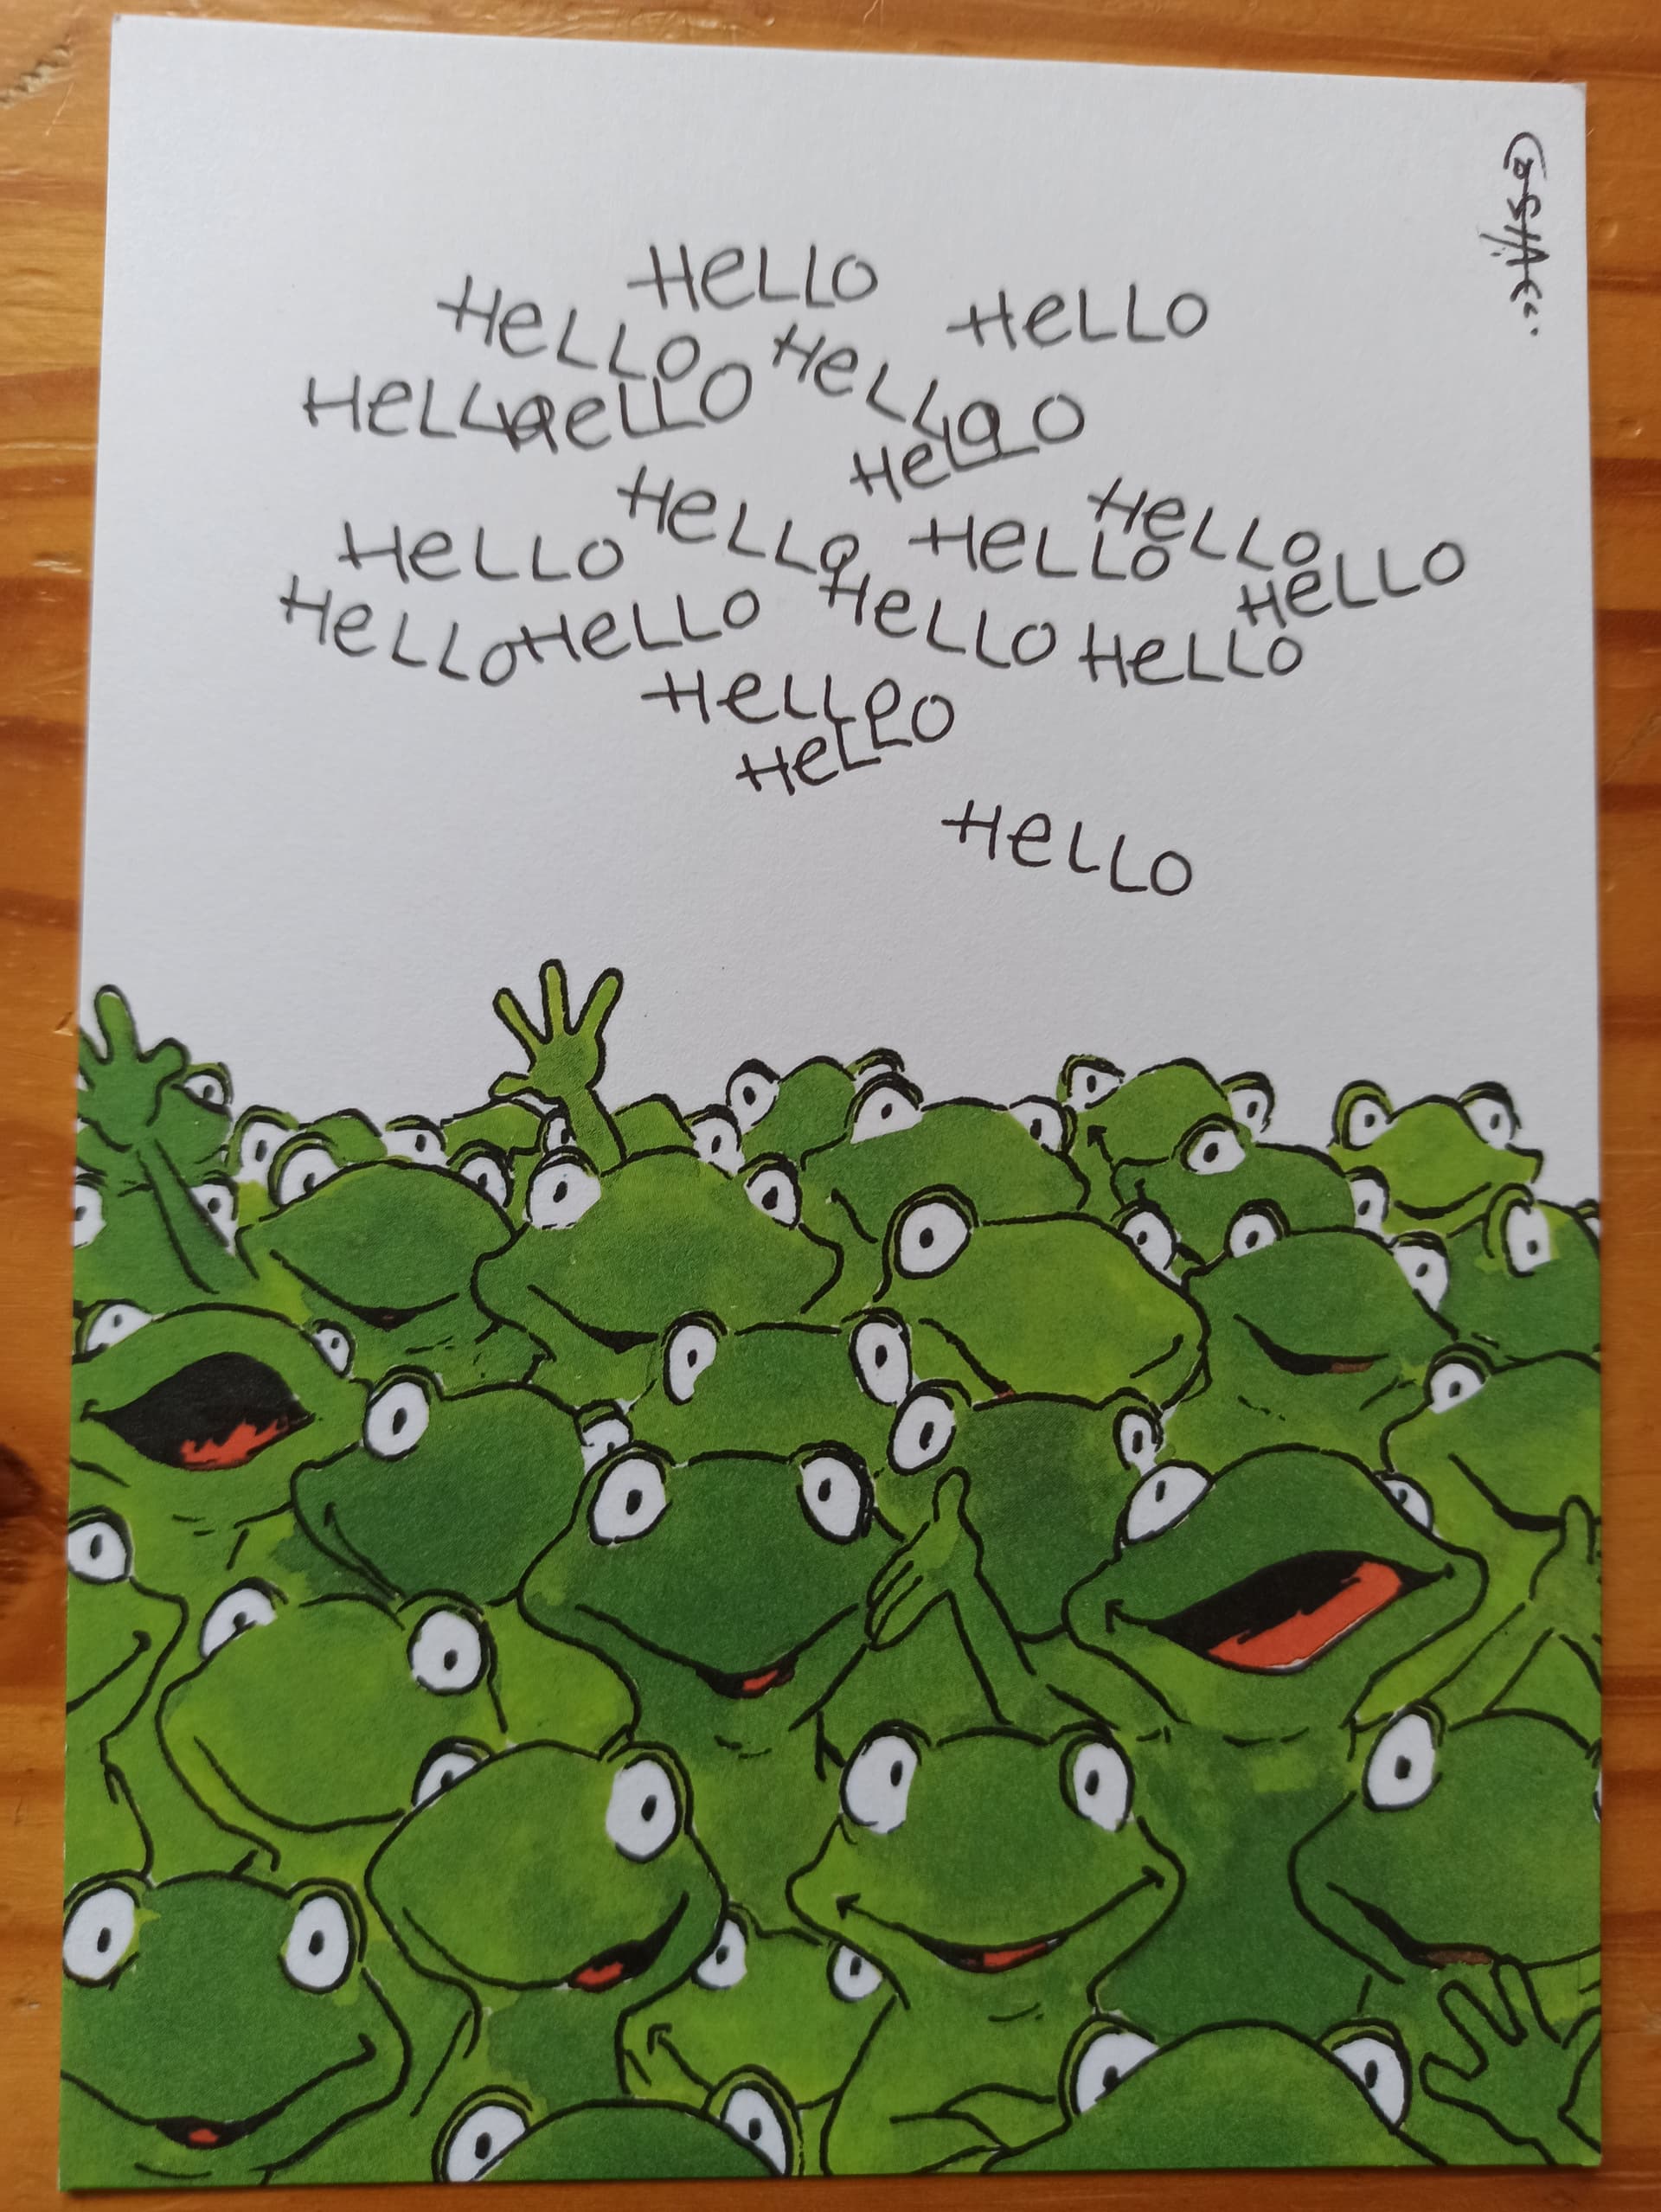 HeLLO
HeLLO HeLLO
HeLLO
HeLLO HeLLO
HeLLO
HeLLO HeLLO
HeLLO HeLLO HeLLO
HeLLO HeLLO HeLLO HeLLO
HeLLO
HeLLO
HeLLO